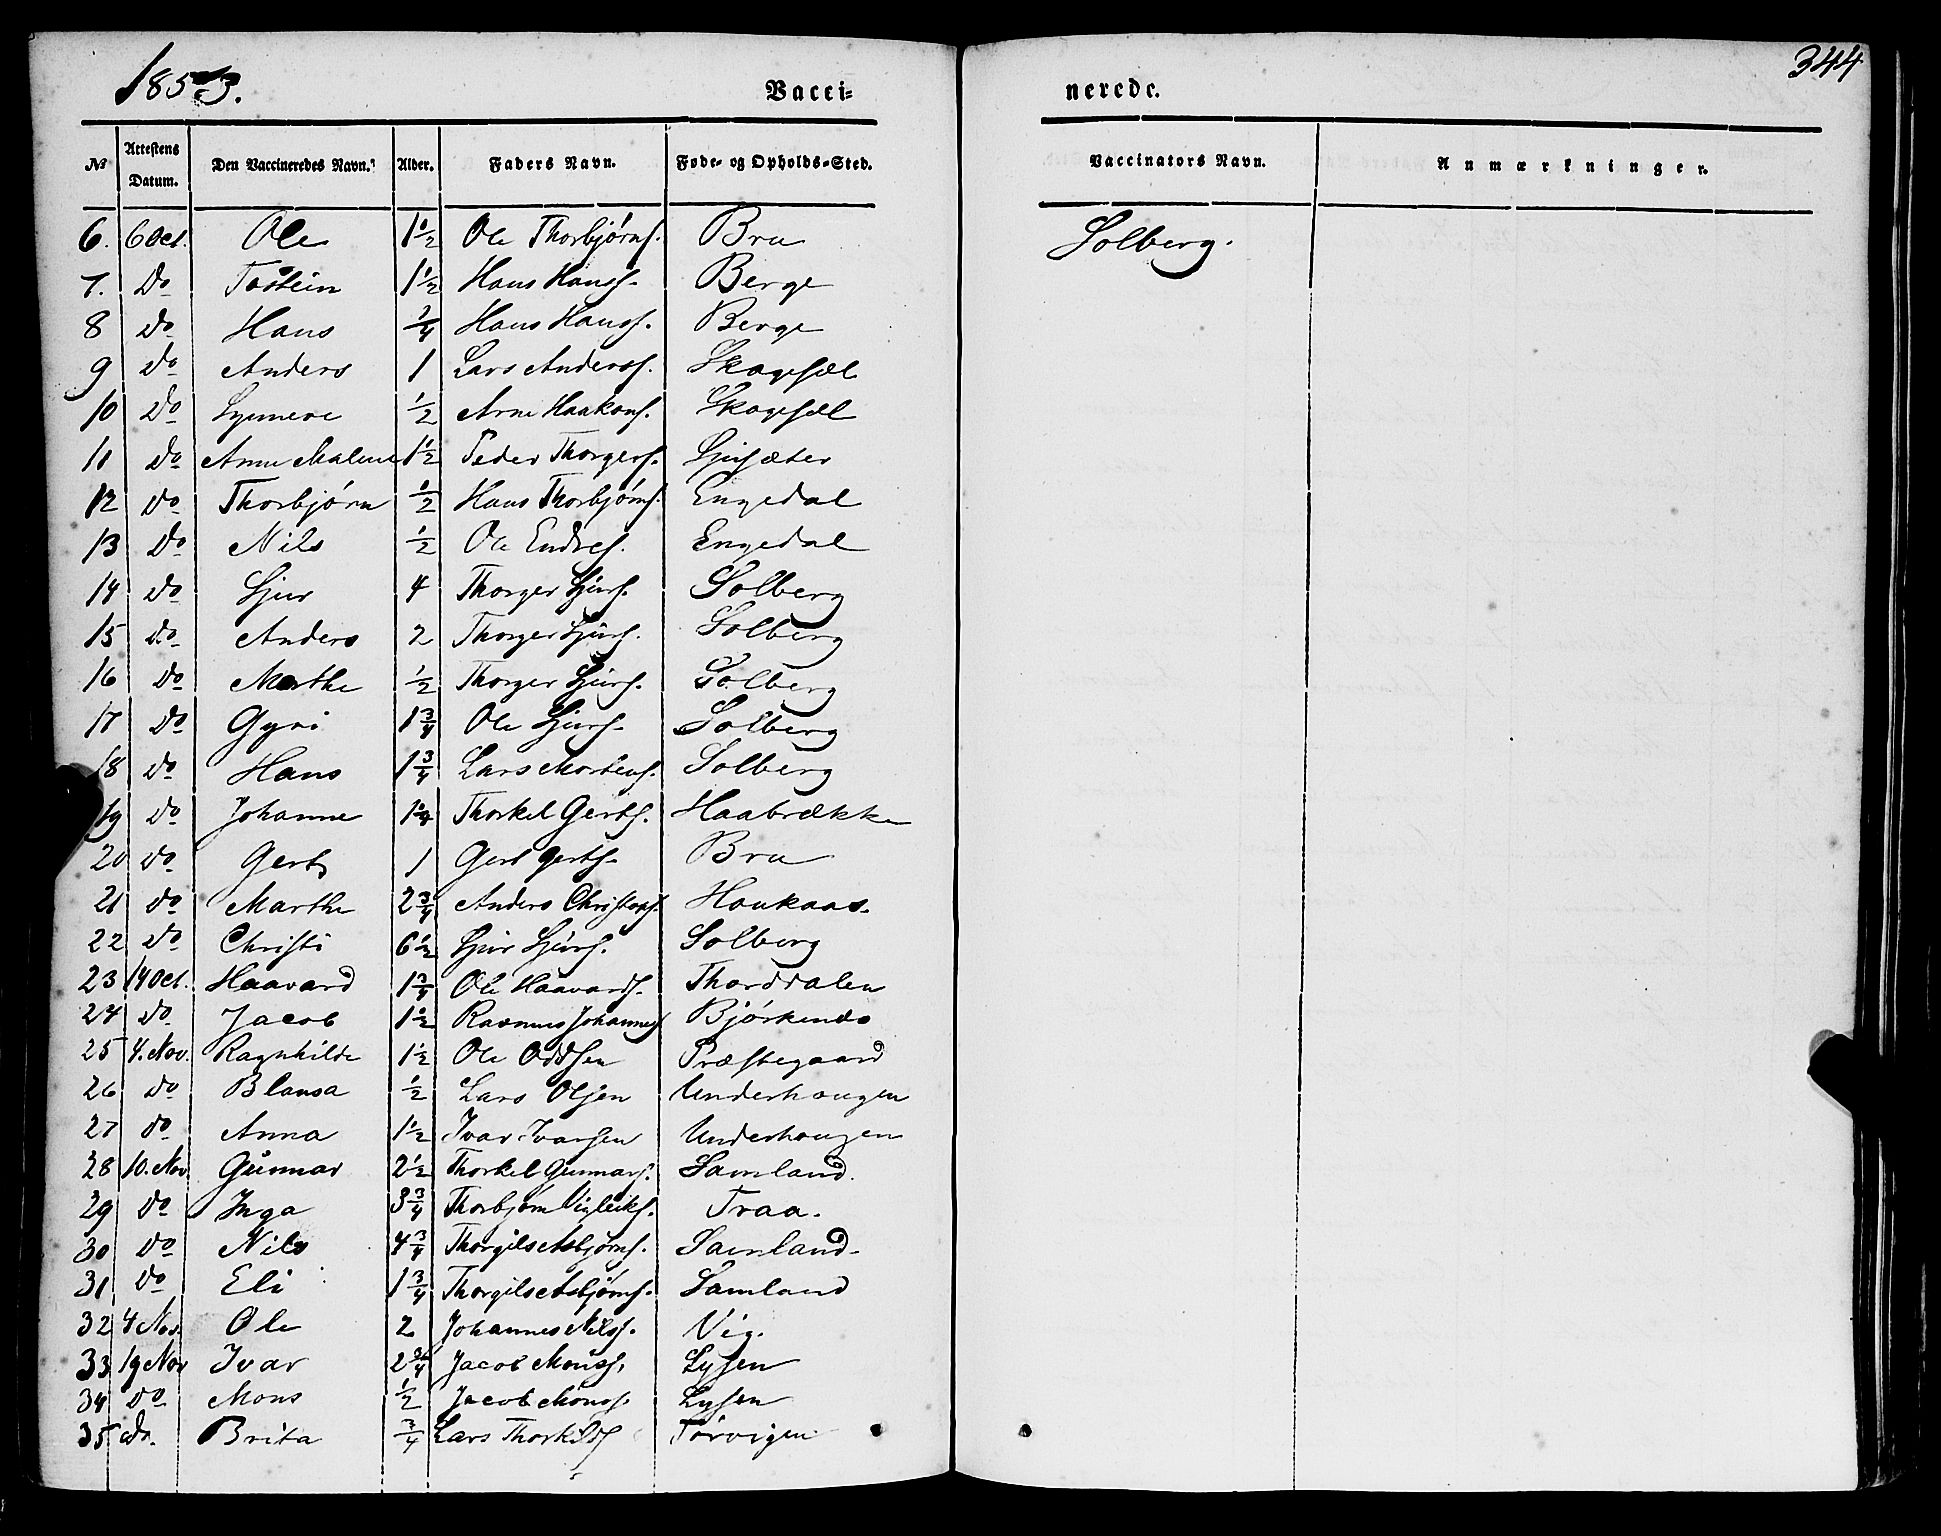 1853.
Vacci-
nerede.
344
№ Attestens Datum. Den Vaccineredes Navn. Alder. Faders Navn. Føde- og Opholds-Sted. Vaccinators Navn. Anmærkninger.
6. 6 Oct. Ole 1½ Ole Thorbjörns. Bru Solberg.
7. Do Tostein 1½ Hans Hanss. Berge
8 Do Hans ¾ Hans Hanss. Berge
9 Do Anders 1 Lars Anderss. Skogsæl
10 Do Synneve ½ Arne Haakons. Skogsæl
11 Do Anne Malene 1½ Peder Thorgers. Ljisæter
12 Do Thorbjörn ½ Hans Thorbjörns. Engedal
13 Do Nils ½ Ole Endres. Engedal
14 Do Sjur 4 Thorger Sjurs. Solberg
15 Do Anders 2 Thorger Sjurs. Solberg
16 Do Marthe ½ Thorger Sjurs. Solberg
17 Do Gyri 1¾ Ole Sjurs. Solberg
18 Do Hans 1¾ Lars Mortens. Solberg
19 Do Johanne 1¼ Thorkel Gerts. Haabrække
20 Do Gert 1 Gert Gerts. Bru
21 Do Marthe 2¾ Anders Christops. Haukaas.
22 Do Christi 6½ Sjur Sjurs. Solberg
23 14 Oct. Haavard 1¾ Ole Haavards. Thorddalen
24 Do Jacob 1½ Rasmus Johanness Björkends
25 4. Nov. Ragnhilde 1½ Ole Oddsen Præstegaard
26 Do Blansa ½ Lars Olsen Underhaugen
27 Do Anna 1½ Ivar Ivarsen Underhaugen
28 10. Nov. Gunnar 2½ Thorkel Gunnars. Samland.
29 Do Inga 3¾ Thorbjörn Vigleiks. Traa.
30 Do Nils 4¾ Thorgils Asbjörns. Samland
31 Do Eli 1¾ Thorgils Asbjörns. Samland
32 4 Nov. Ole 2 Johannes Nilss. Vig.
33 19 Nov Ivar 2¾ Jacob Monss. Lysen
34 Do Mons ½ Jacob Monss. Lysen
35 Do. Brita ¾ Lars Thorkilds Törvigen